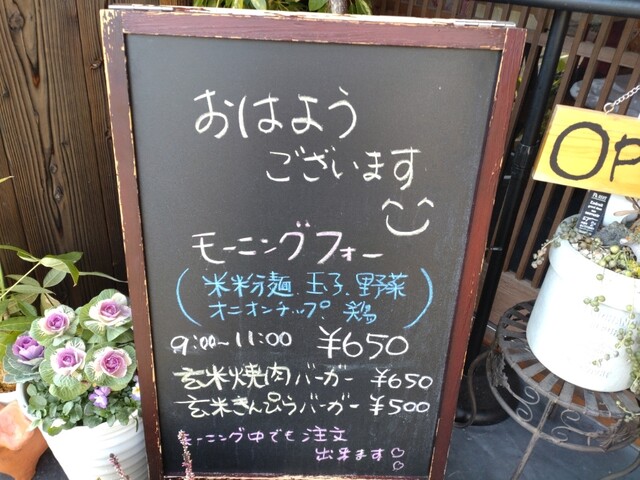 おはよう
ございます
モーニングフォー
(米粉麺、玉子、野菜
オニオンチップ、鶏)
9:00~11:00 ¥650
玄米焼肉バーガー ¥650
玄米きんぴらバーガー ¥500
モーニング中でも注文
出来ます♡
OP